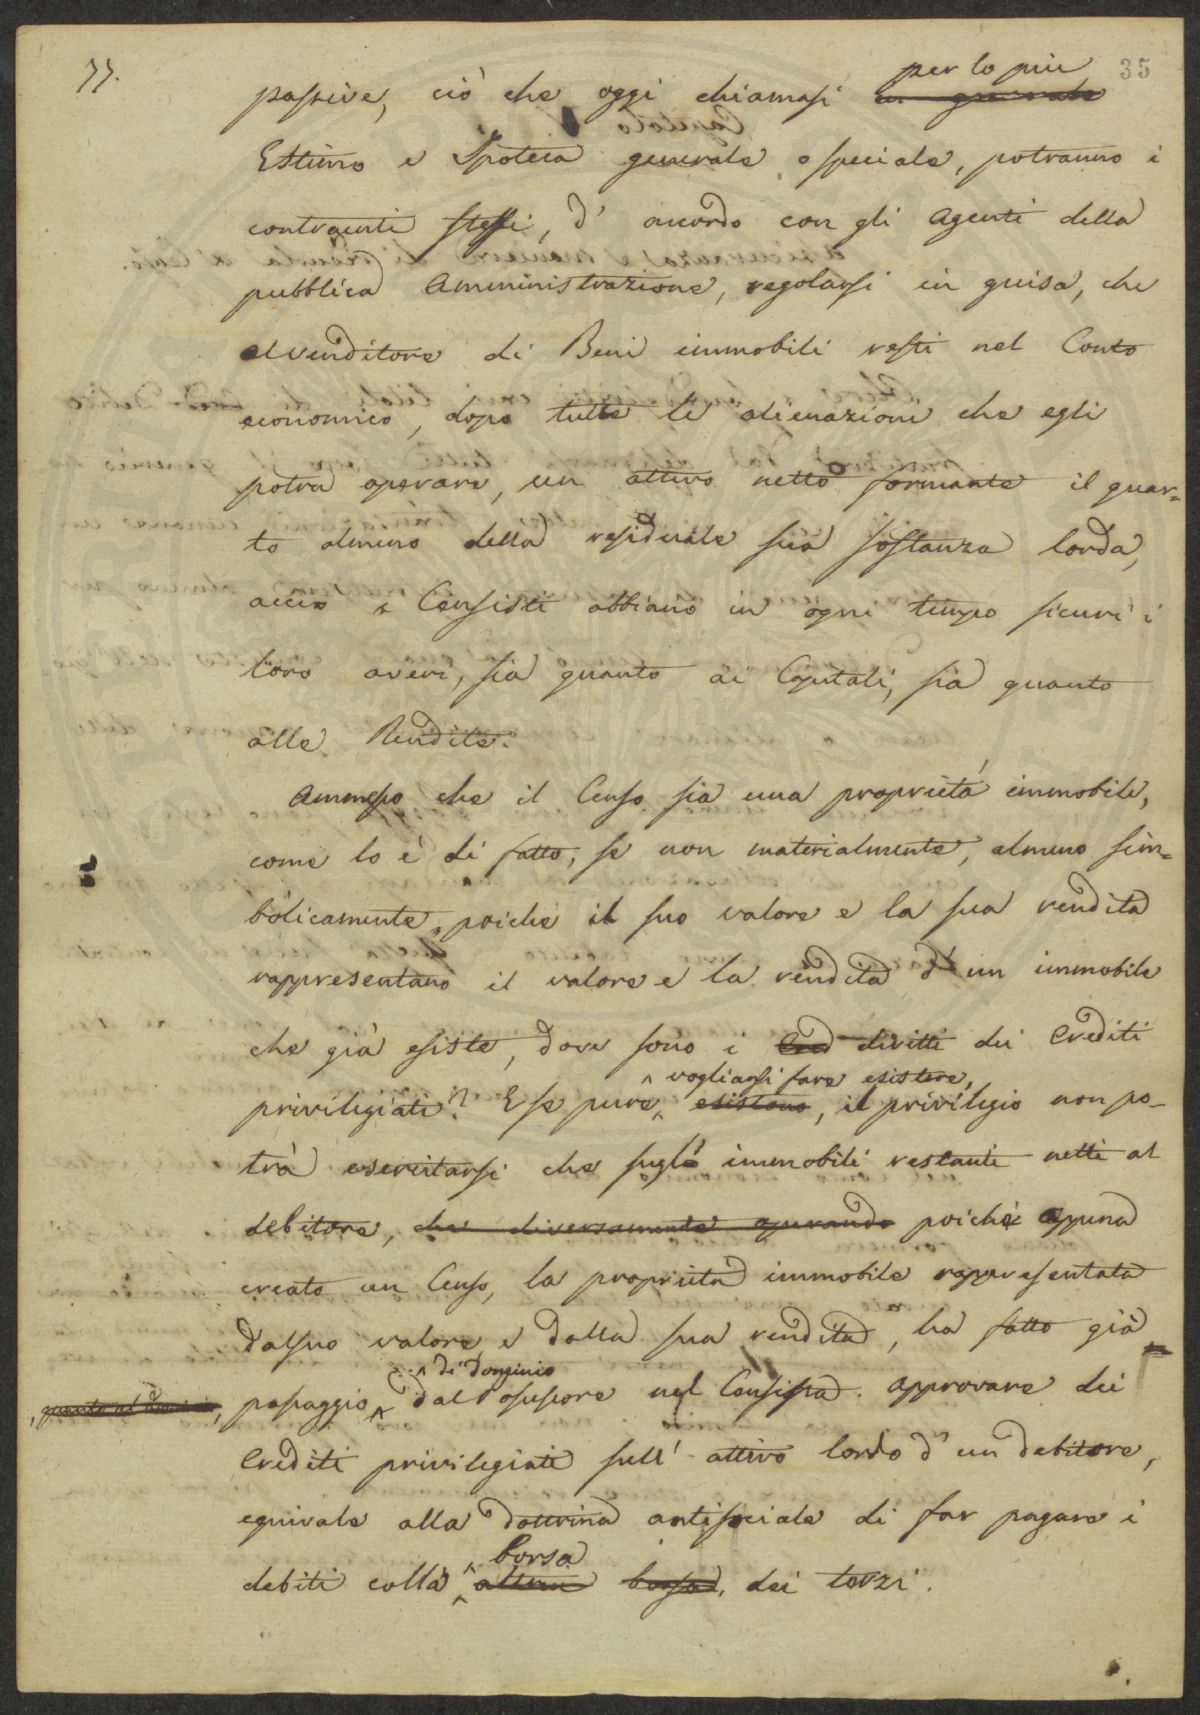 77.
35
per lo più
passive, ciò che oggi chiamasi in generale
Estimo e Ipoteca generale o speciale, potranno i
contraenti stessi, d'accordo con gli Agenti della
pubblica Amministrazione, regolarsi in guisa, che
al venditore di Beni immobili resti nel Conto
economico, dopo tutte le alienazioni che egli
potrà operare, un attivo netto formante il quar=
to almeno della residuale sua sostanza lorda,
acciò i Censisti abbiano in ogni tempo sicuri i
loro averi, sia quanto ai Capitali, sia quanto
alle Rendite.
Ammesso che il Censo sia una proprietà immobile,
come lo è di fatto, se non materialmente, almeno sim=
bolicamente, poichè il suo valore e la sua rendita
rappresentano il valore e la rendita d'un immobile
che già esiste, dove sono i Cred diritti dei Crediti
vogliansi fare esistere,
privilegiati? E se pure esistono, il privilegio non po-
trà esercitarsi che sugli immobili restanti netti al
debitore, che diversamente operando poichè appena
creato un Censo, la proprietà immobile rappresentata
dal suo valore e dalla sua rendita, ha fatto già
di dominio
, quanto al dominio, passaggio dal Possessore nel Censista. Approvare dei
Crediti privilegiati sull'attivo lordo d'un debitore,
equivale alla dottrina antisociale di far pagare i
borsa
debiti colla altrui borsa, dei terzi.